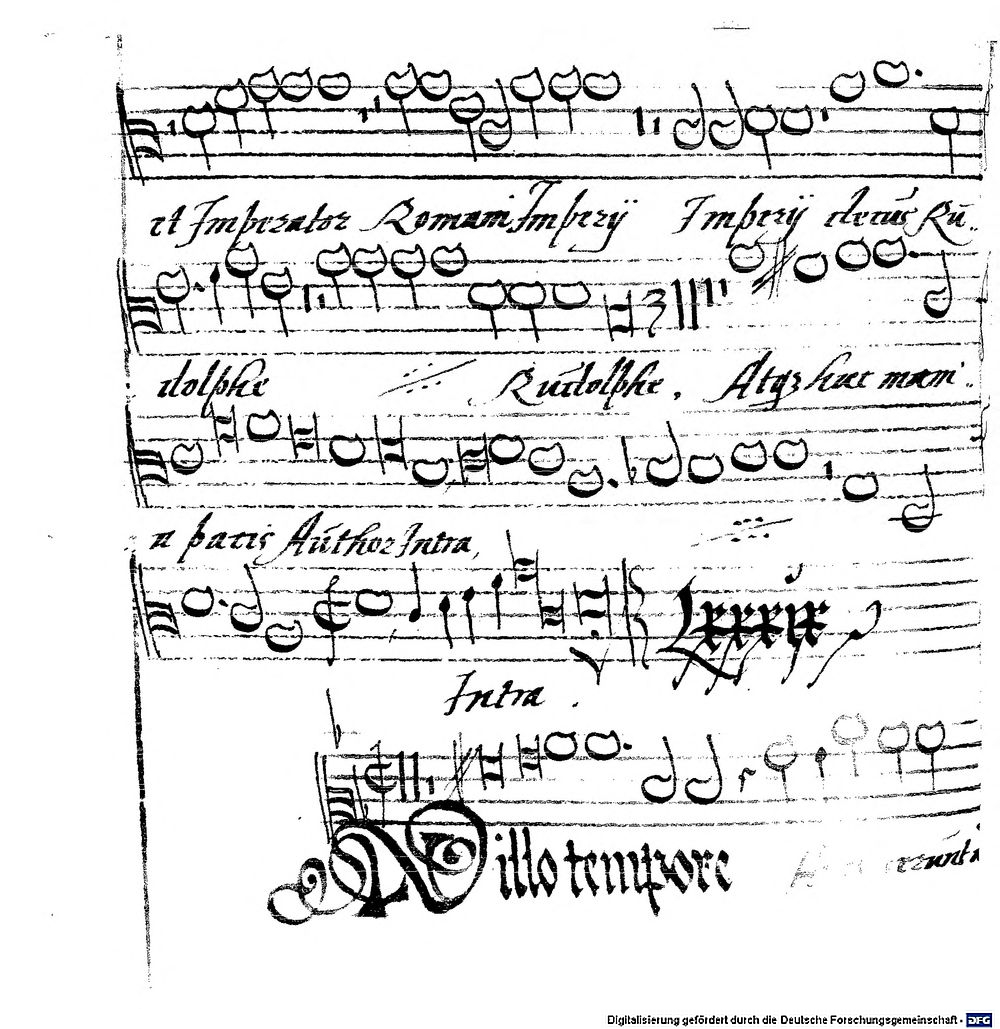 et Imperator Romani Imperÿ Imperÿ decus Rũ..
dolphe Rudolphe. Atqz huc mam..
n pacis Author Intra,
Lxxxix
Intra.
In illo tempore
Digitalisierung gefördert durch die Deutsche Forschungsgemeinschaft - DFG